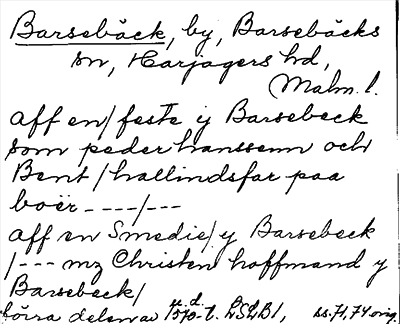 Barsebäck, by, Barsebäcks
sn, Harjagers hd,
Malm. l.
aff en/feste y Barsebeck
som peder hanssenn och
Bent/hallindsfar paa
boer ----/---
aff en Smedie/ y Barsebeck
/--- mz Christen hoffmand y
Barsebeck/
förra delen av 1570-t. LSLB1, ss. 71, 74 orig.